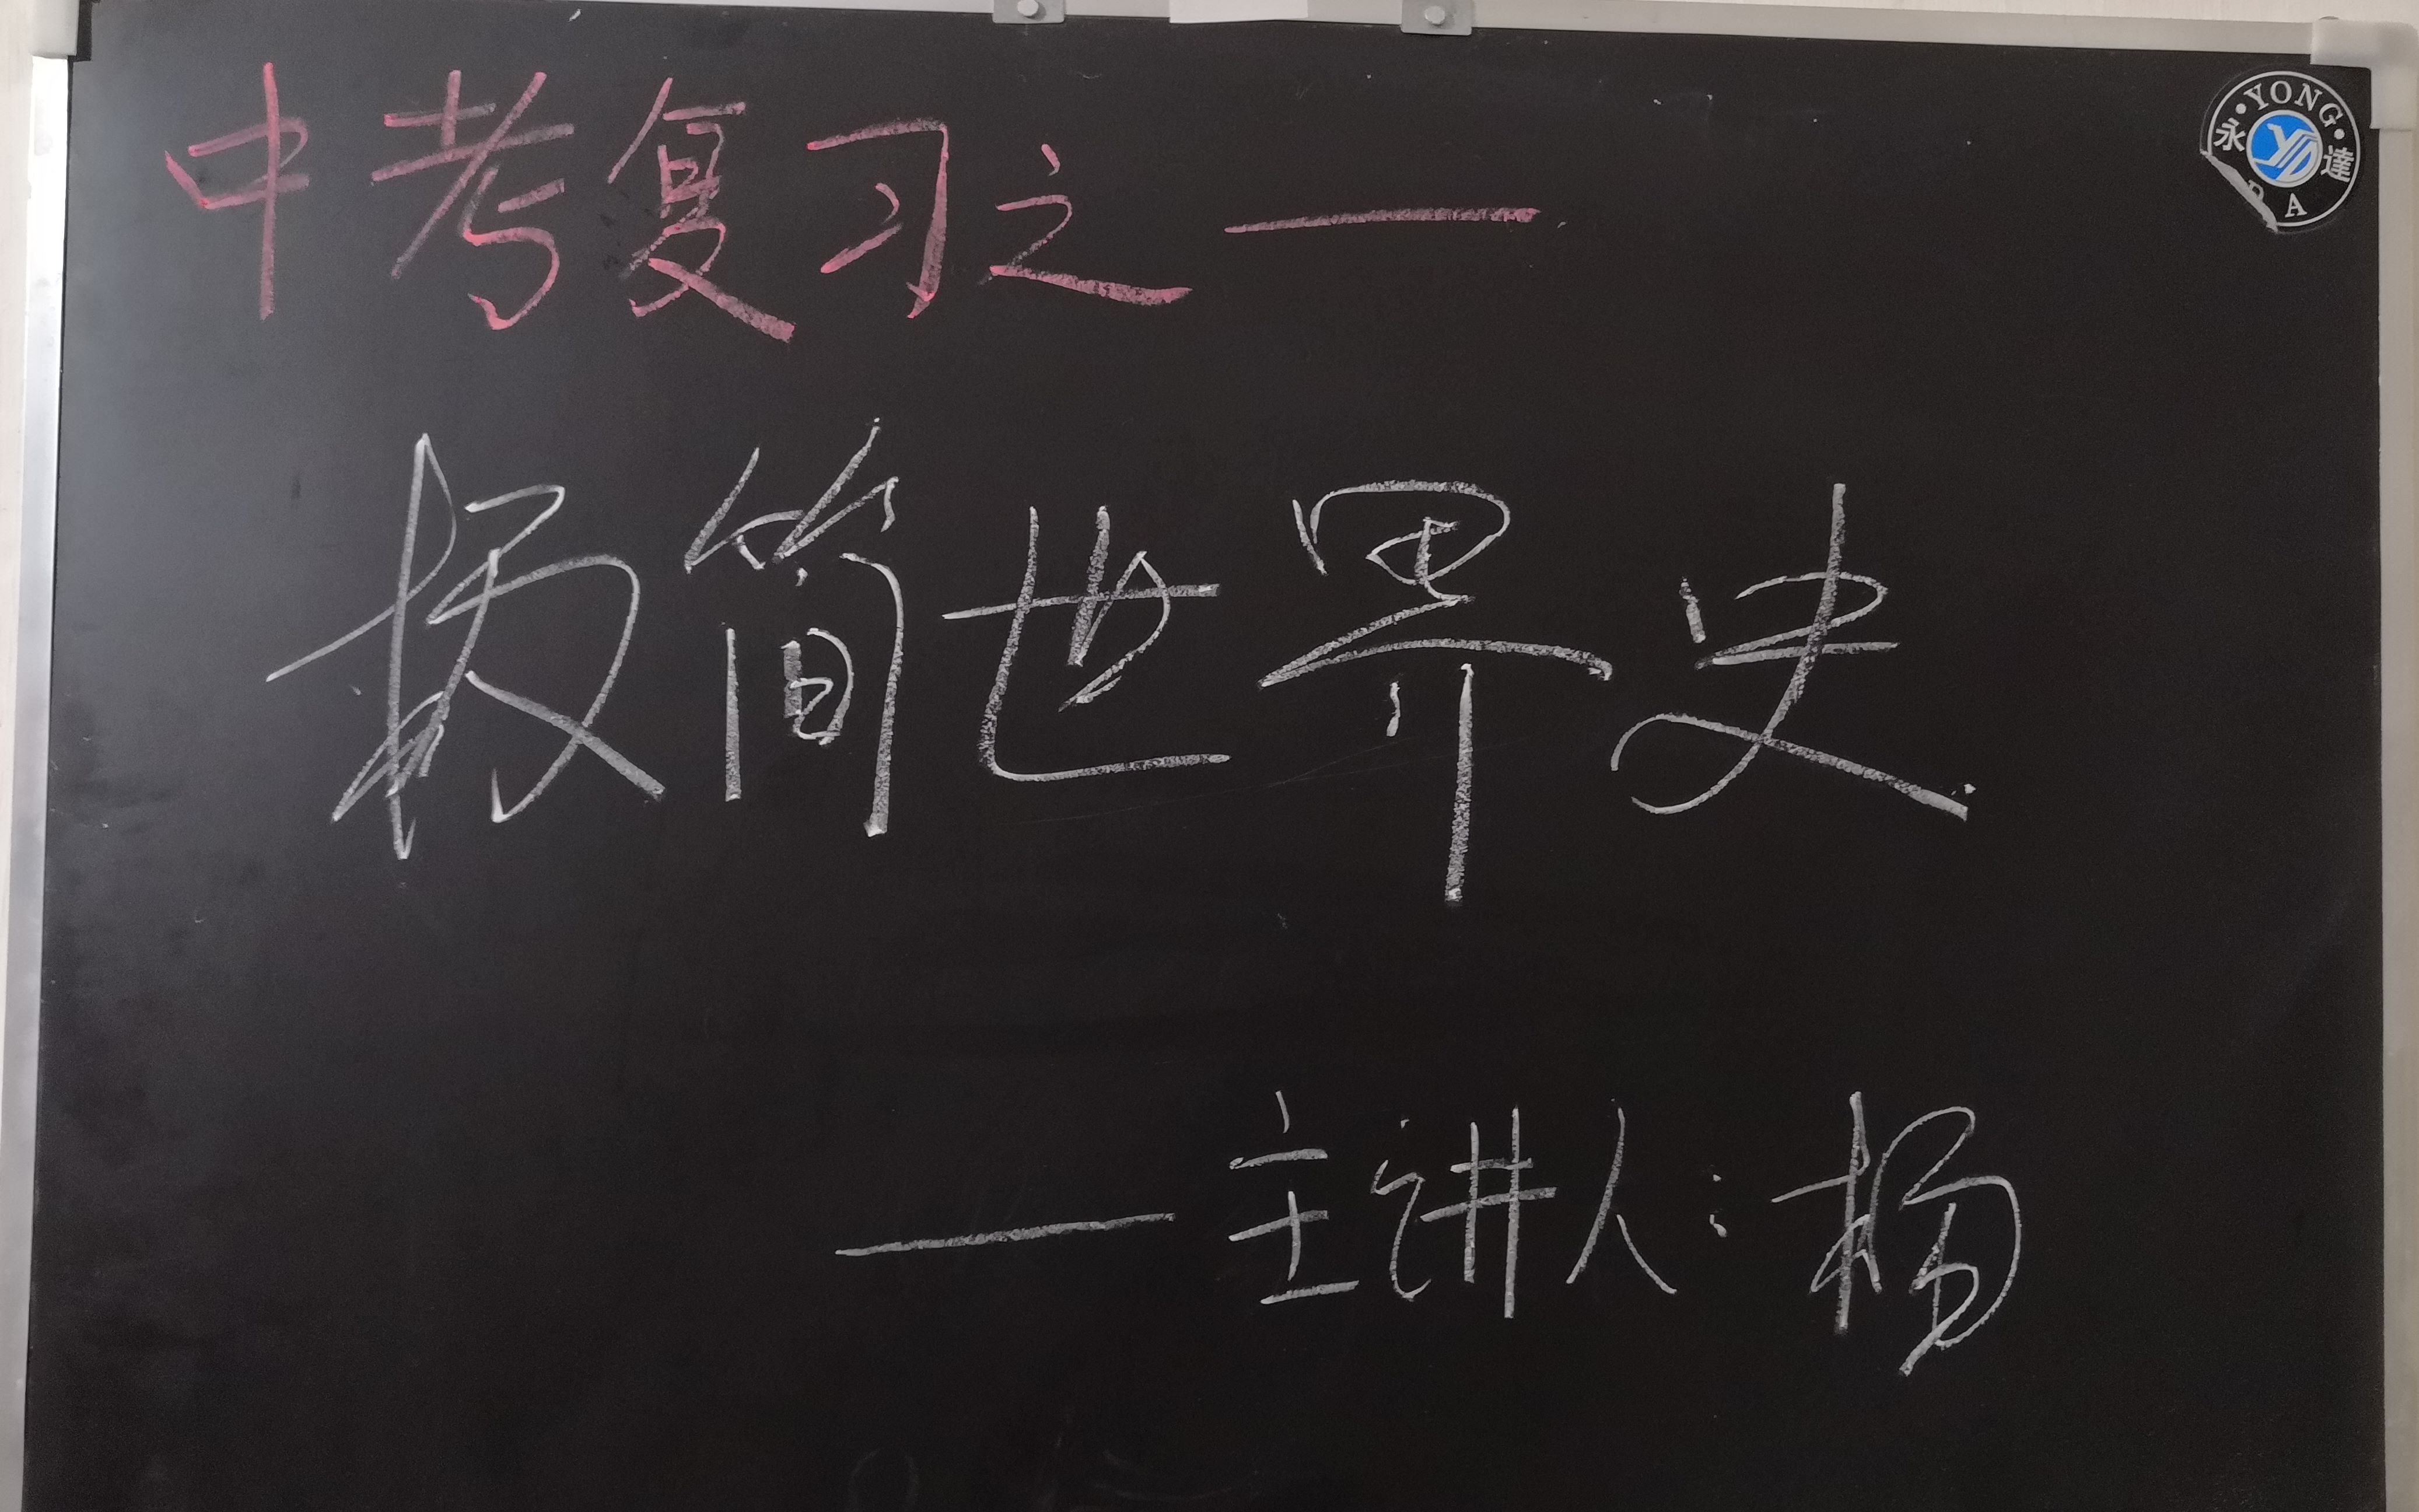 中考复习之一
永 YONG 達 DA
极简世界史
——主讲人：杨